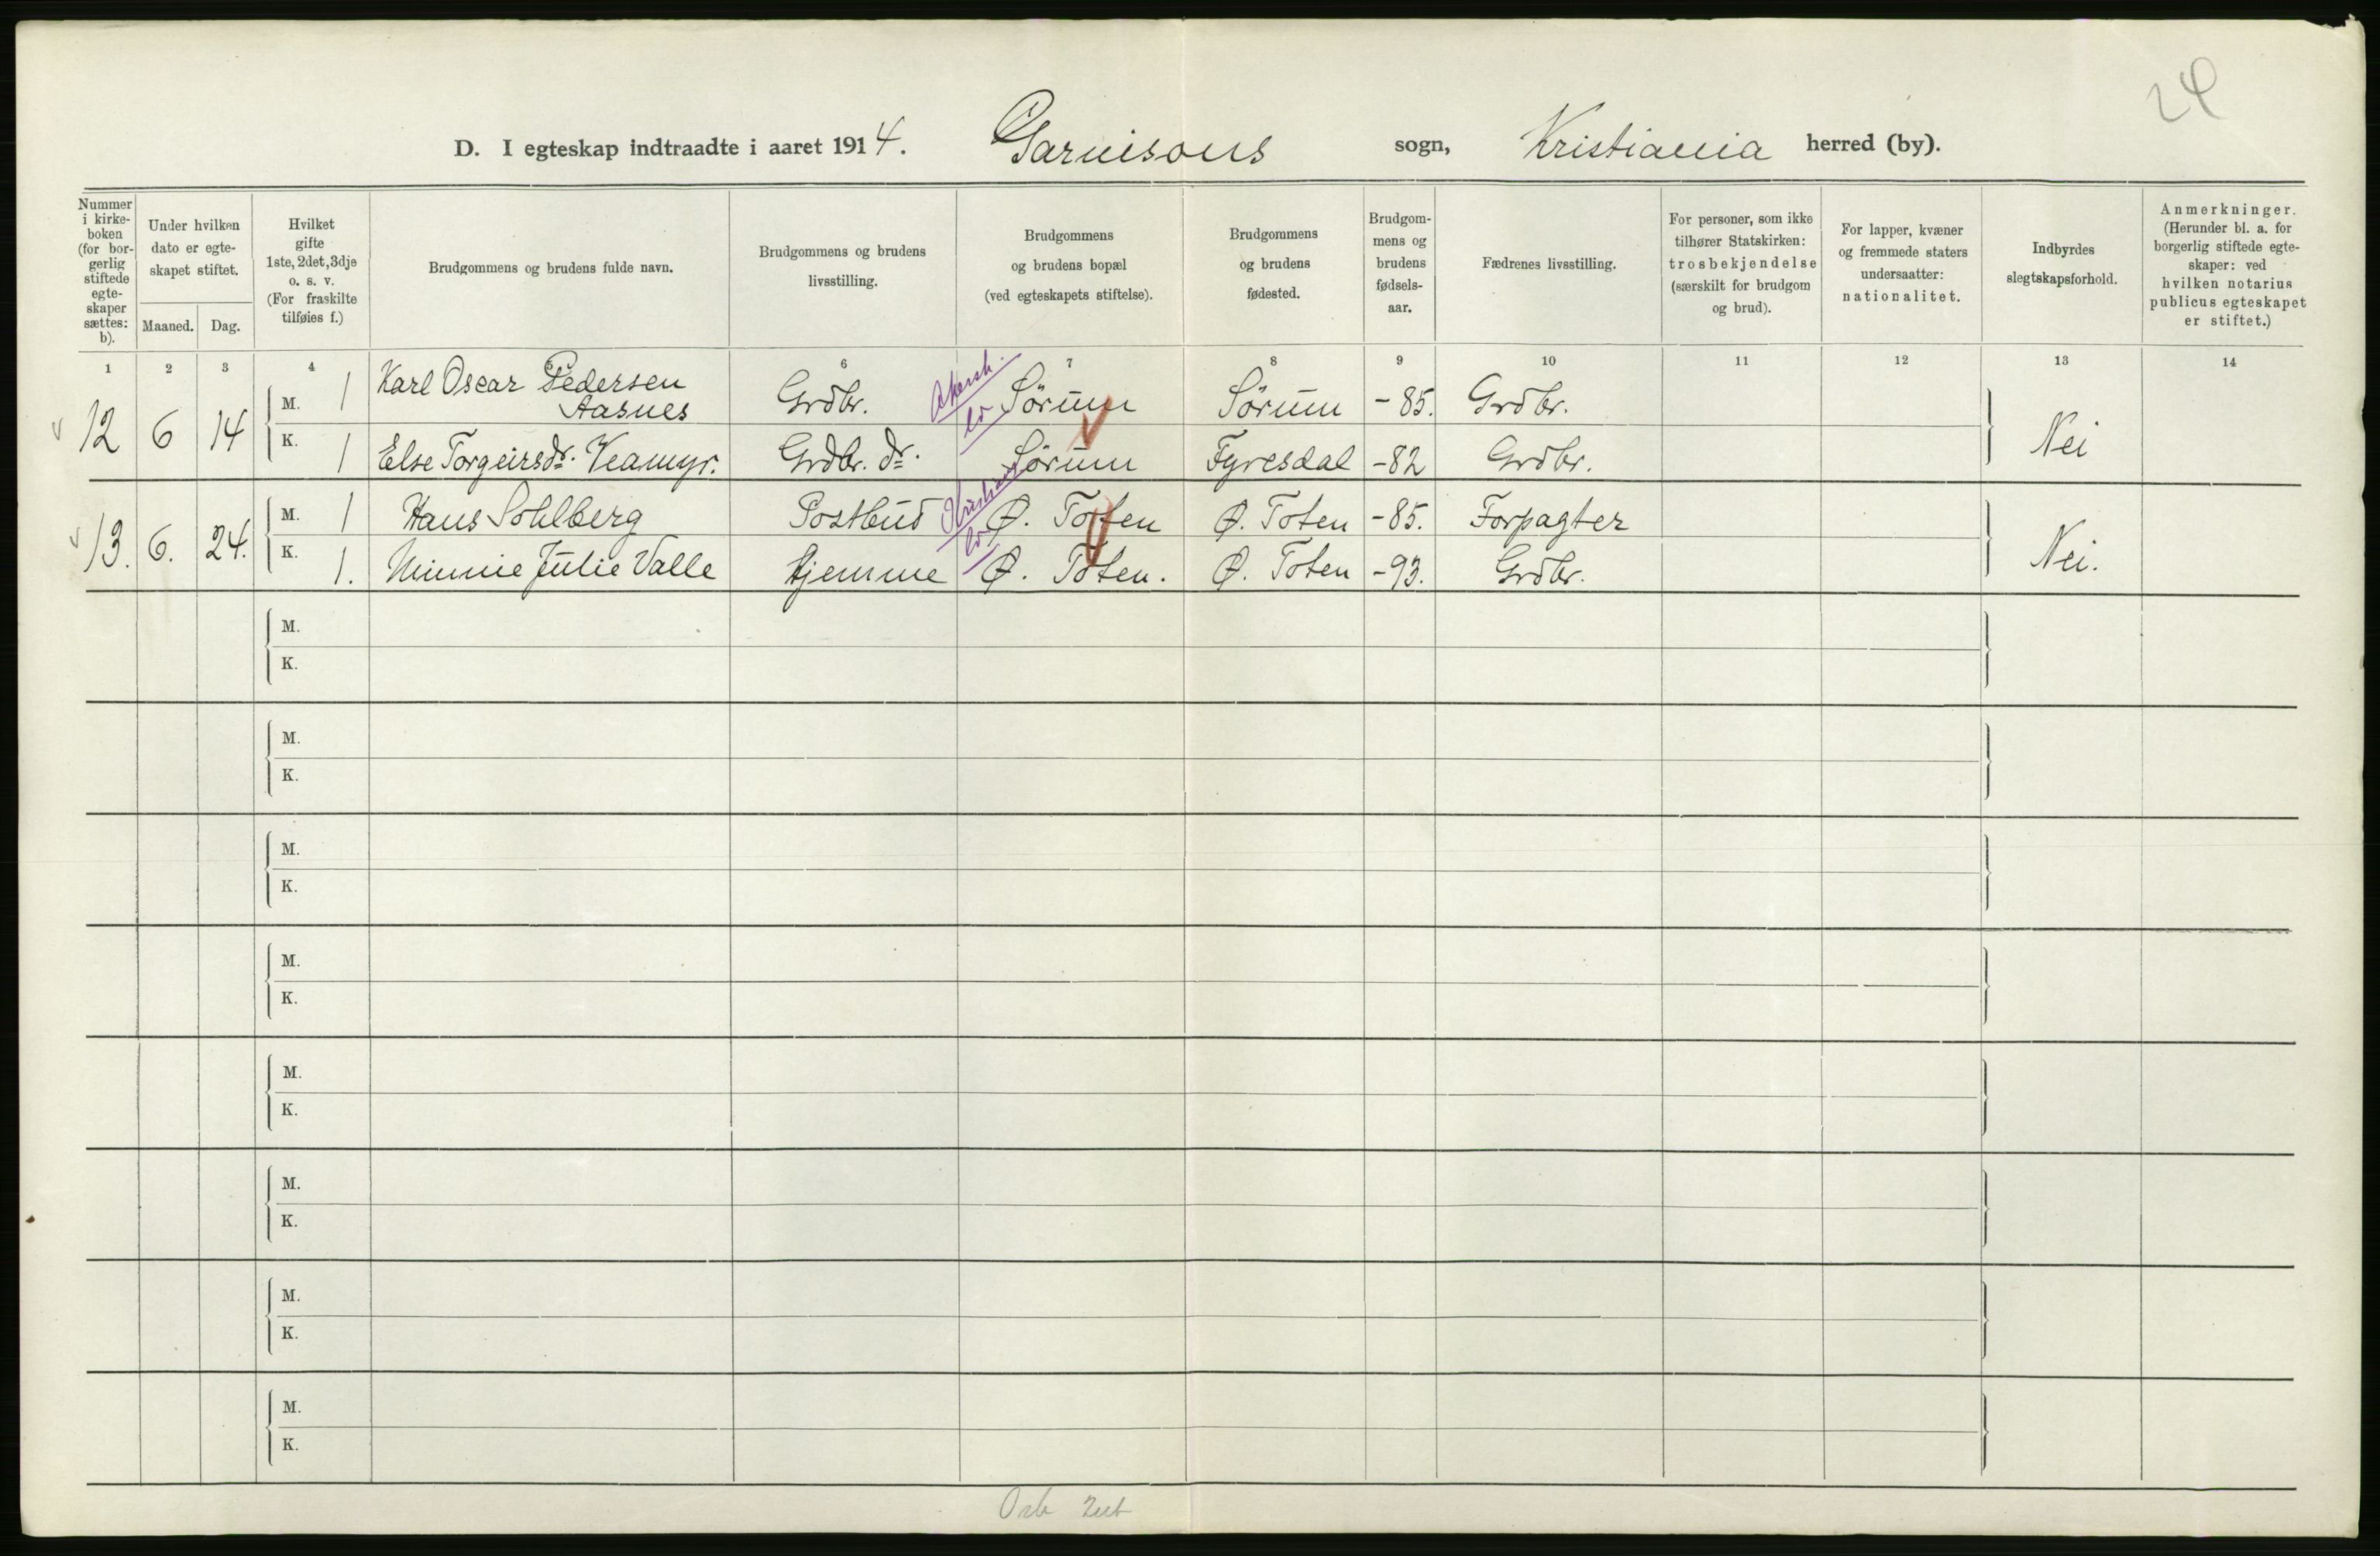 24
D. I egteskap indtraadte i aaret 1914. Garnisons sogn, Kristiania herred (by).
Nummer
i kirke-
boken
(for bor-
gerlig
stiftede
egte-
skaper
sættes:
b).
Under hvilken
dato er egte-
skapet stiftet.
Maaned. Dag.
Hvilket
gifte
1ste, 2det, 3dje
o. s. v.
(For fraskilte
tilføies f.)
Brudgommens og brudens fulde navn.
Brudgommens og brudens
livsstilling.
Brudgommens
og brudens bopæl
(ved egteskapets stiftelse).
Brudgommens
og brudens
fødested.
Brudgom-
mens og
brudens
fødsels-
aar.
Fædrenes livsstilling.
For personer, som ikke
tilhører Statskirken:
trosbekjendelse
(særskilt for brudgom
og brud).
For lapper, kvæner
og fremmede staters
undersaatter:
nationalitet.
Indbyrdes
slegtskapsforhold.
Anmerkninger.
(Herunder bl. a. for
borgerlig stiftede egte-
skaper: ved
hvilken notarius
publicus egteskapet
er stiftet.)
1 2 3 4 5 6 7 8 9 10 11 12 13 14
12 6 14
M. 1 Karl Oscar Pedersen
Aasnes Grdbr. Sörum Sörum -85. Grdbr.
K. 1 Else Torgeirsdr. Veamyr. Grdbr. dr. Sörum Fyresdal -82 Grdbr.
Nei
13. 6. 24.
M. 1 Hans Sohlberg Postbud Ø. Toten Ø. Toten -85. Forpagter
K. 1. Minnie Julie Valle Hjemme Ø. Toten. Ø. Toten -93. Grdbr.
Nei.
M.
K.
M.
K.
M.
K.
M.
K.
M.
K.
M.
K.
M.
K.
M.
K.